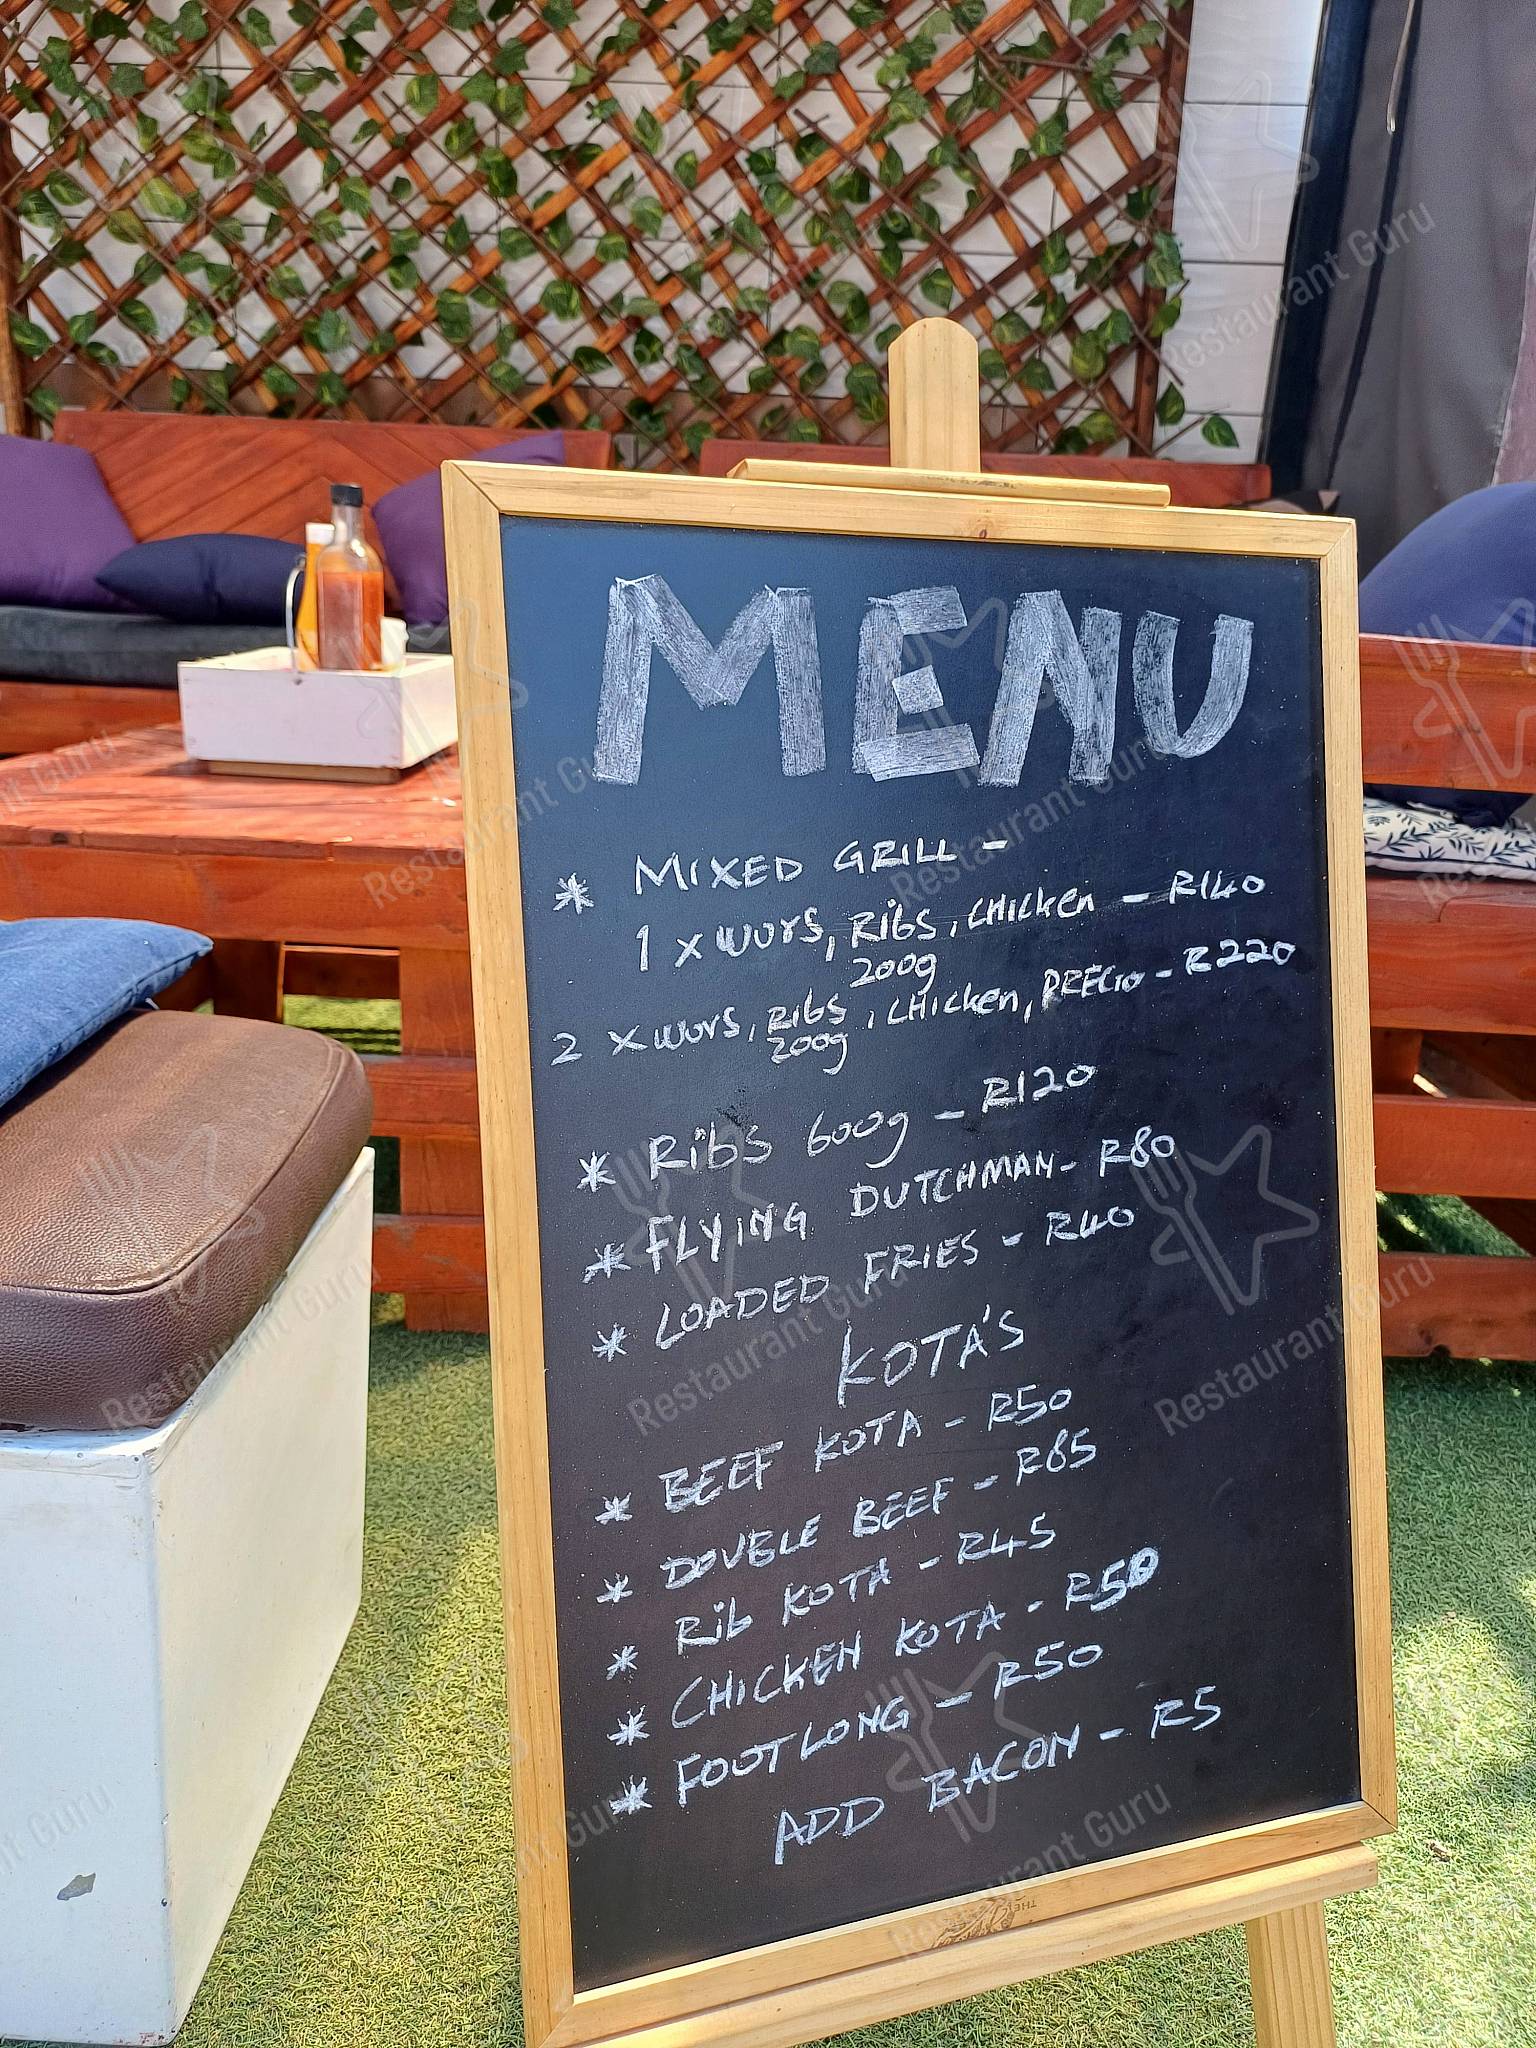 MENU
* MIXED GRILL -
1 x WORS, RIBS, CHICKEN - R140
200g
2 x WORS, RIBS, CHICKEN, PREGO - R220
200g
* RIBS 600g - R120
* FLYING DUTCHMAN - R80
* LOADED FRIES - R40
KOTA'S
* BEEF KOTA - R50
* DOUBLE BEEF - R85
* RIB KOTA - R45
* CHICKEN KOTA - R50
* FOOTLONG - R50
ADD BACON - R5
Restaurant Guru